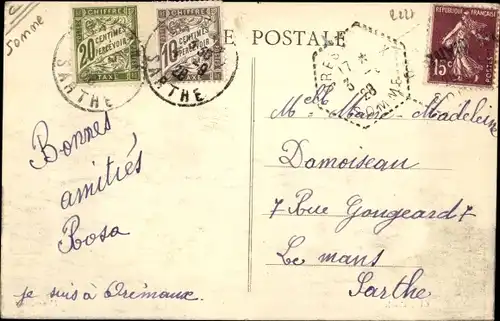 Somme
2221
CHIFFRE
20 CENTIMES
À PERCEVOIR
TAXE
CHIFFRE
10 CENTIMES
À PERCEVOIR
SARTHE
SARTHE
E POSTALE
17 *
3 -
28
SOMME
RÉPUBLIQUE FRANÇAISE
15c
Melle Marie Madeleine
Damoiseau
7 Rue Gougeard 7
Le mans
Sarthe
Bonnes
amitiés
Rosa
je suis à Orémaux.